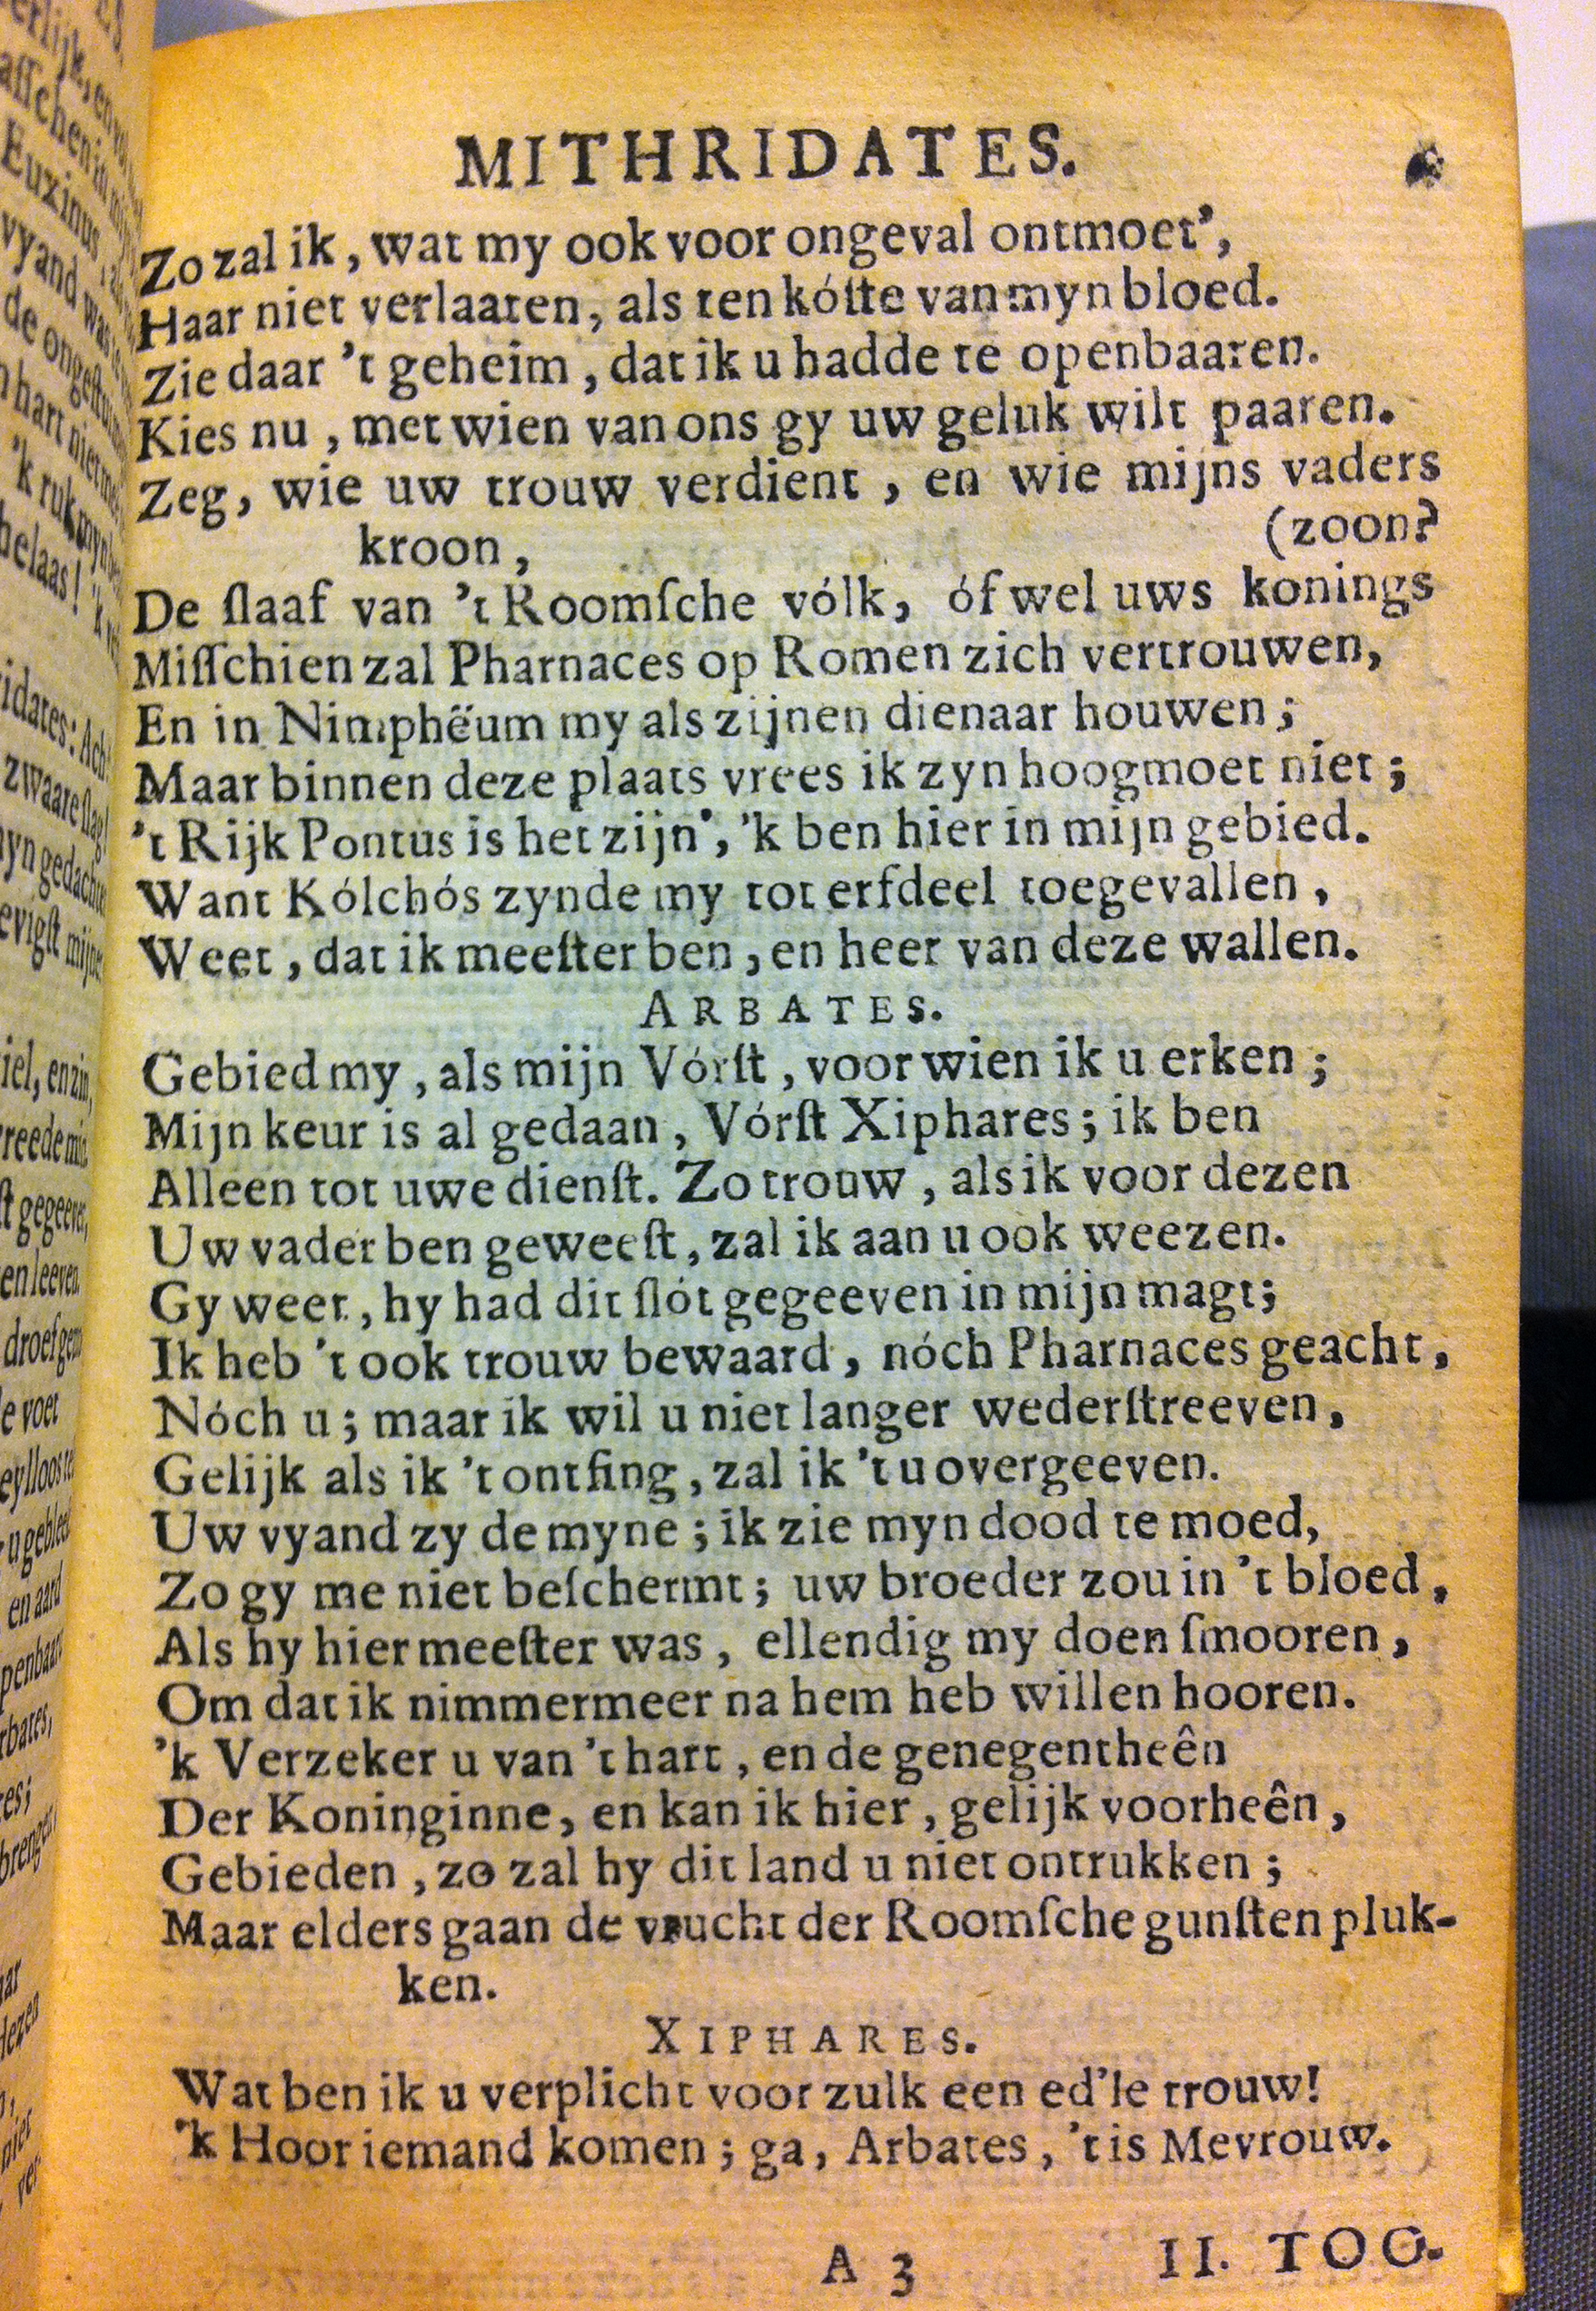 MITHRIDATES.
Zo zal ik, wat my ook voor ongeval ontmoet',
Haar niet verlaaten, als ten kóſte van myn bloed.
Zie daar 't geheim, dat ik u hadde te openbaaren.
Kies nu, met wien van ons gy uw geluk wilt paaren.
Zeg, wie uw trouw verdient, en wie mijns vaders
kroon, (zoon?
De ſlaaf van 't Roomſche vólk, óf wel uws konings
Miſſchien zal Pharnaces op Romen zich vertrouwen,
En in Nimphëum my als zijnen dienaar houwen;
Maar binnen deze plaats vrees ik zyn hoogmoet niet;
't Rijk Pontus is het zijn', 'k ben hier in mijn gebied.
Want Kólchós zynde my tot erfdeel toegevallen,
Weet, dat ik meeſter ben, en heer van deze wallen.
ARBATES.
Gebied my, als mijn Vórſt, voor wien ik u erken;
Mijn keur is al gedaan, Vórſt Xiphares; ik ben
Alleen tot uwe dienſt. Zo trouw, als ik voor dezen
Uw vader ben geweeſt, zal ik aan u ook weezen.
Gy weet, hy had dit ſlót gegeeven in mijn magt;
Ik heb 't ook trouw bewaard, nóch Pharnaces geacht,
Nóch u; maar ik wil u niet langer wederſtreeven,
Gelijk als ik 't ontfing, zal ik 't u overgeeven.
Uw vyand zy de myne; ik zie myn dood te moed,
Zo gy me niet beſchermt; uw broeder zou in 't bloed,
Als hy hier meeſter was, ellendig my doen ſmooren,
Om dat ik nimmermeer na hem heb willen hooren.
'k Verzeker u van 't hart, en de genegentheên
Der Koninginne, en kan ik hier, gelijk voorheên,
Gebieden, zo zal hy dit land u niet ontrukken;
Maar elders gaan de vrucht der Roomſche gunſten pluk-
ken.
XIPHARES.
Wat ben ik u verplicht voor zulk een ed'le trouw!
'k Hoor iemand komen; ga, Arbates, 't is Mevrouw.
A 3 II. TOO-